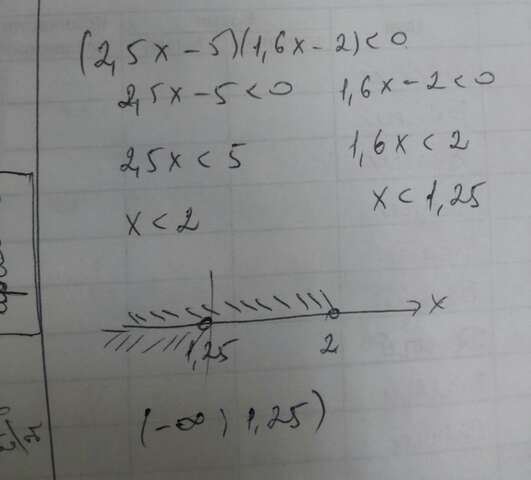 (2,5x-5)(1,6x-2)<0
2,5x-5<0 1,6x-2<0
2,5x<5 1,6x<2
x<2 x<1,25
x
1,25 2
(-∞; 1,25)